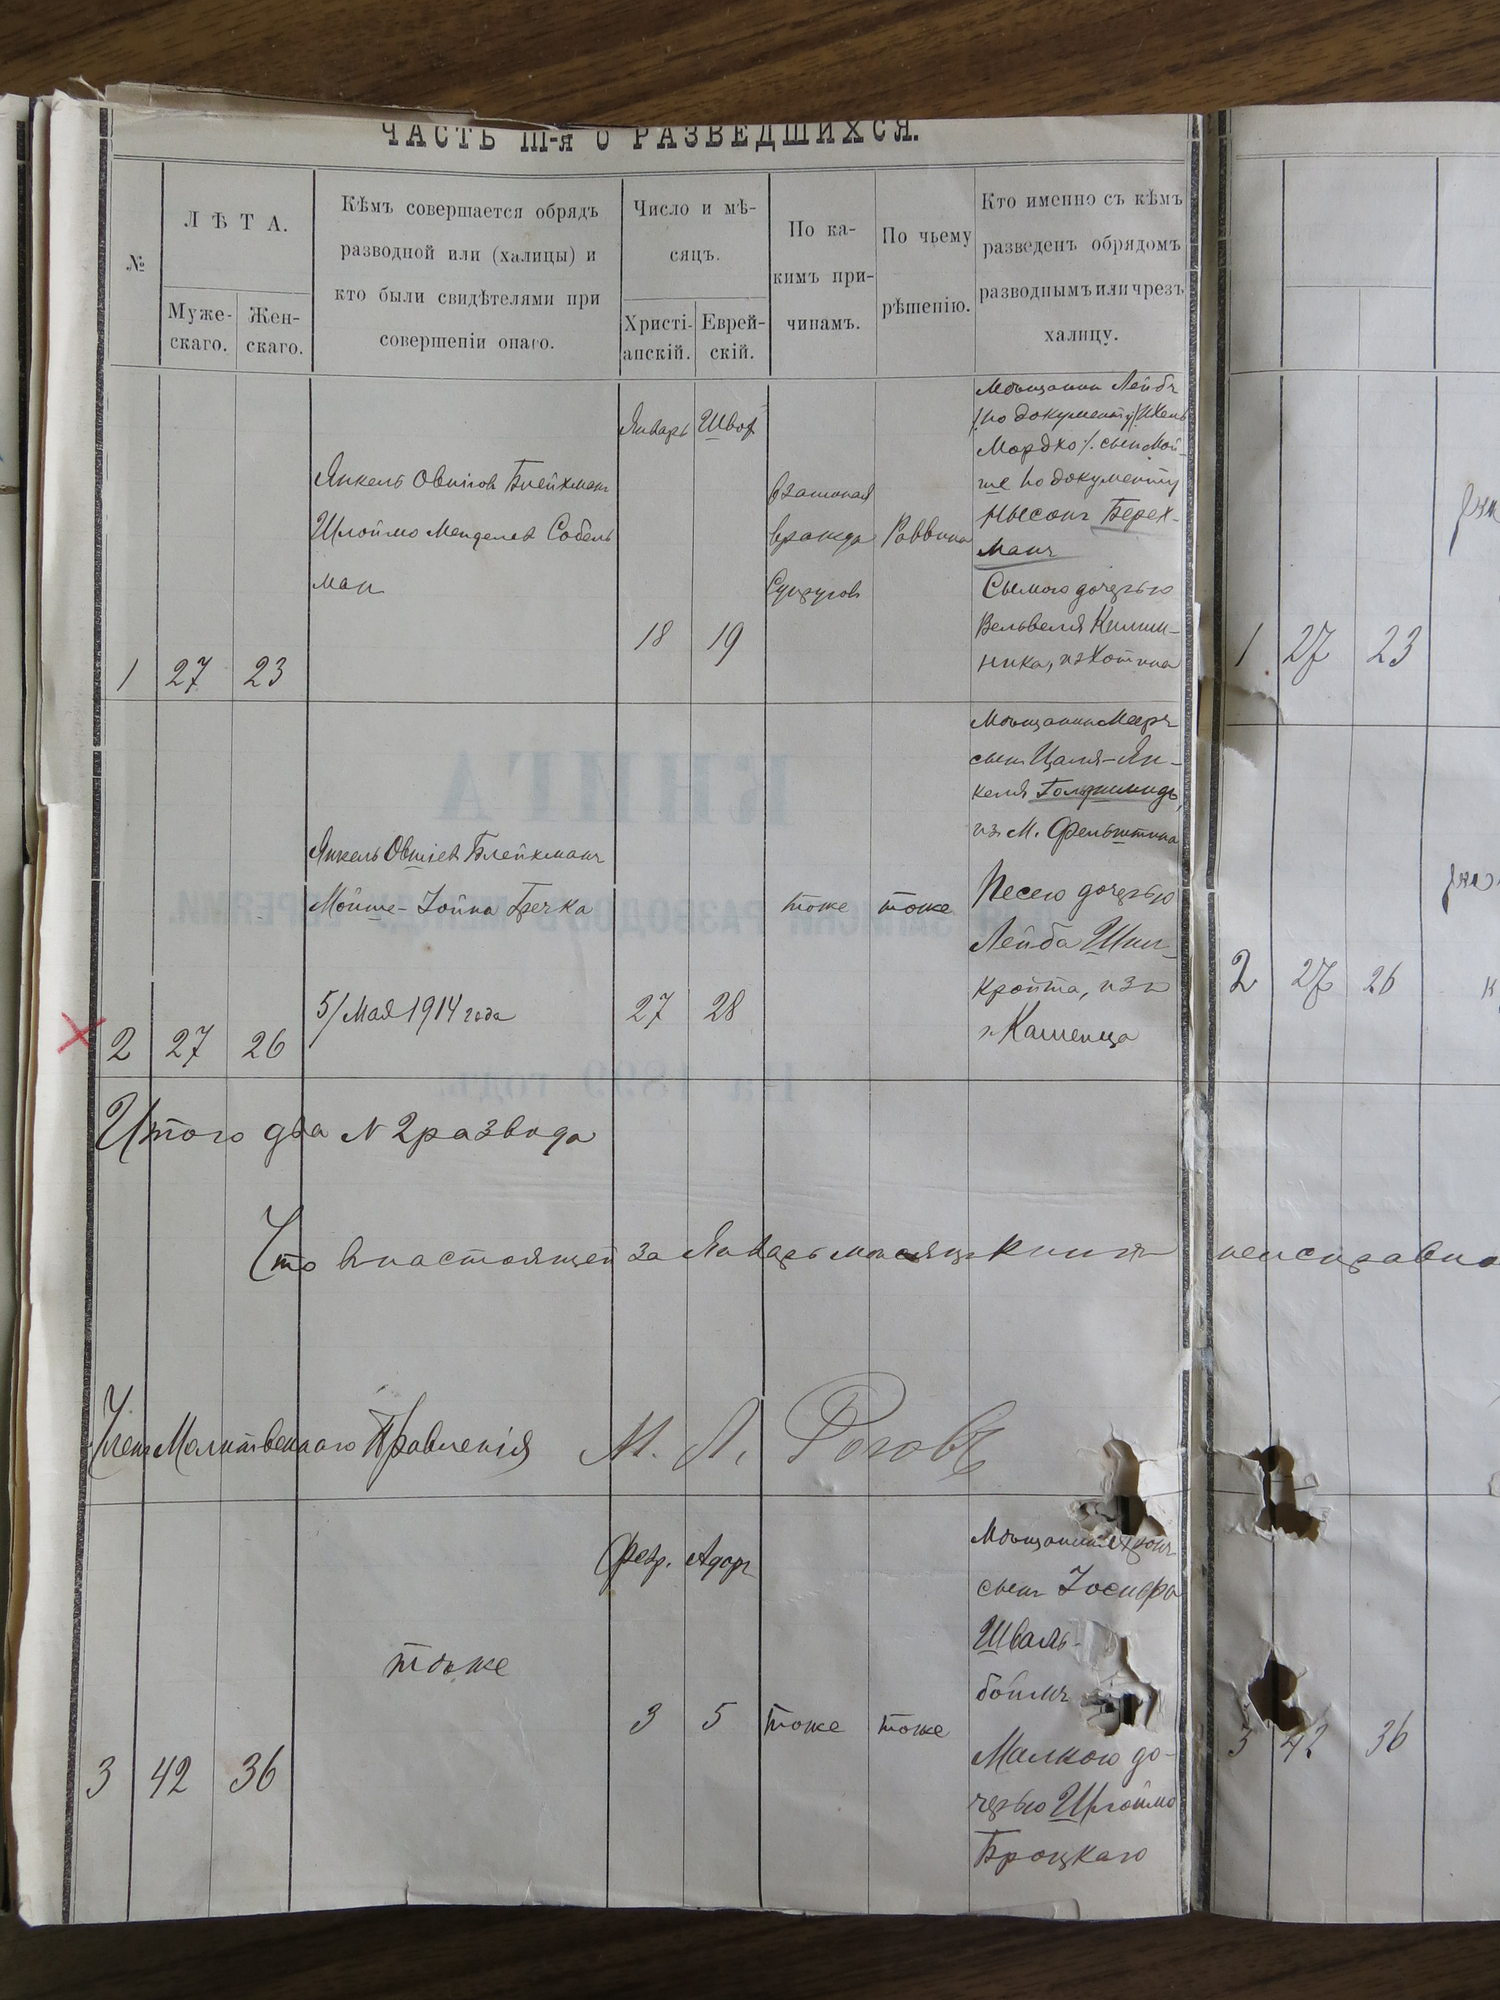 ЧАСТЬ III-я О РАЗВЕДШИХСЯ.
№
ЛѢТА.
Муже-
скаго.
Жен-
скаго.
Кѣмъ совершается обрядъ
разводной или (халицы) и
кто были свидѣтелями при
совершеніи онаго.
Число и мѣ-
сяцъ.
Христі-
анскій.
Еврей-
скій.
По ка-
кимъ при-
чинамъ.
По чьему
рѣшенію.
Кто именно съ кѣмъ
разведенъ обрядомъ
разводнымъ или чрезъ
халицу.
1
27
23
Янкель Овшіев Блейхманъ
Шлоймо Менделев Собель
ман
Январь
18
Шват
19
взаимная
вражда
Супругов
Раввина
Мѣщанин Лейбъ
/по документу
Мордко/. сынъ Мой-
ше по документу
Нысонъ Берех-
манъ
Сымою дочерью
Вельвеля
ника, из Хотина
1
27
23
2
27
26
Янкель Овшіев Блейхманъ
Мойше-Іойна Бречка
5/Мая 1914 года
27
28
тоже
тоже
Мѣщанин Мееръ
сынъ Цаля-Ян-
келя Гольдшмидъ,
из М. Фельштина
Песею дочерью
Лейба Шни-
кройта, из
г. Каменца
2
27
26
Итого два N 2 развода
Что в настоящей за Январь мѣсяцъ книги неисправно
Член Молитвеннаго Правленія М. Л. Роговъ
3
42
36
тоже
Февр.
3
Адаръ
5
тоже
тоже
Мѣщанин
сынъ Іосифа
Шваль-
боймъ
Малкою до-
черью Шлоймо
Броцкаго
3
42
36